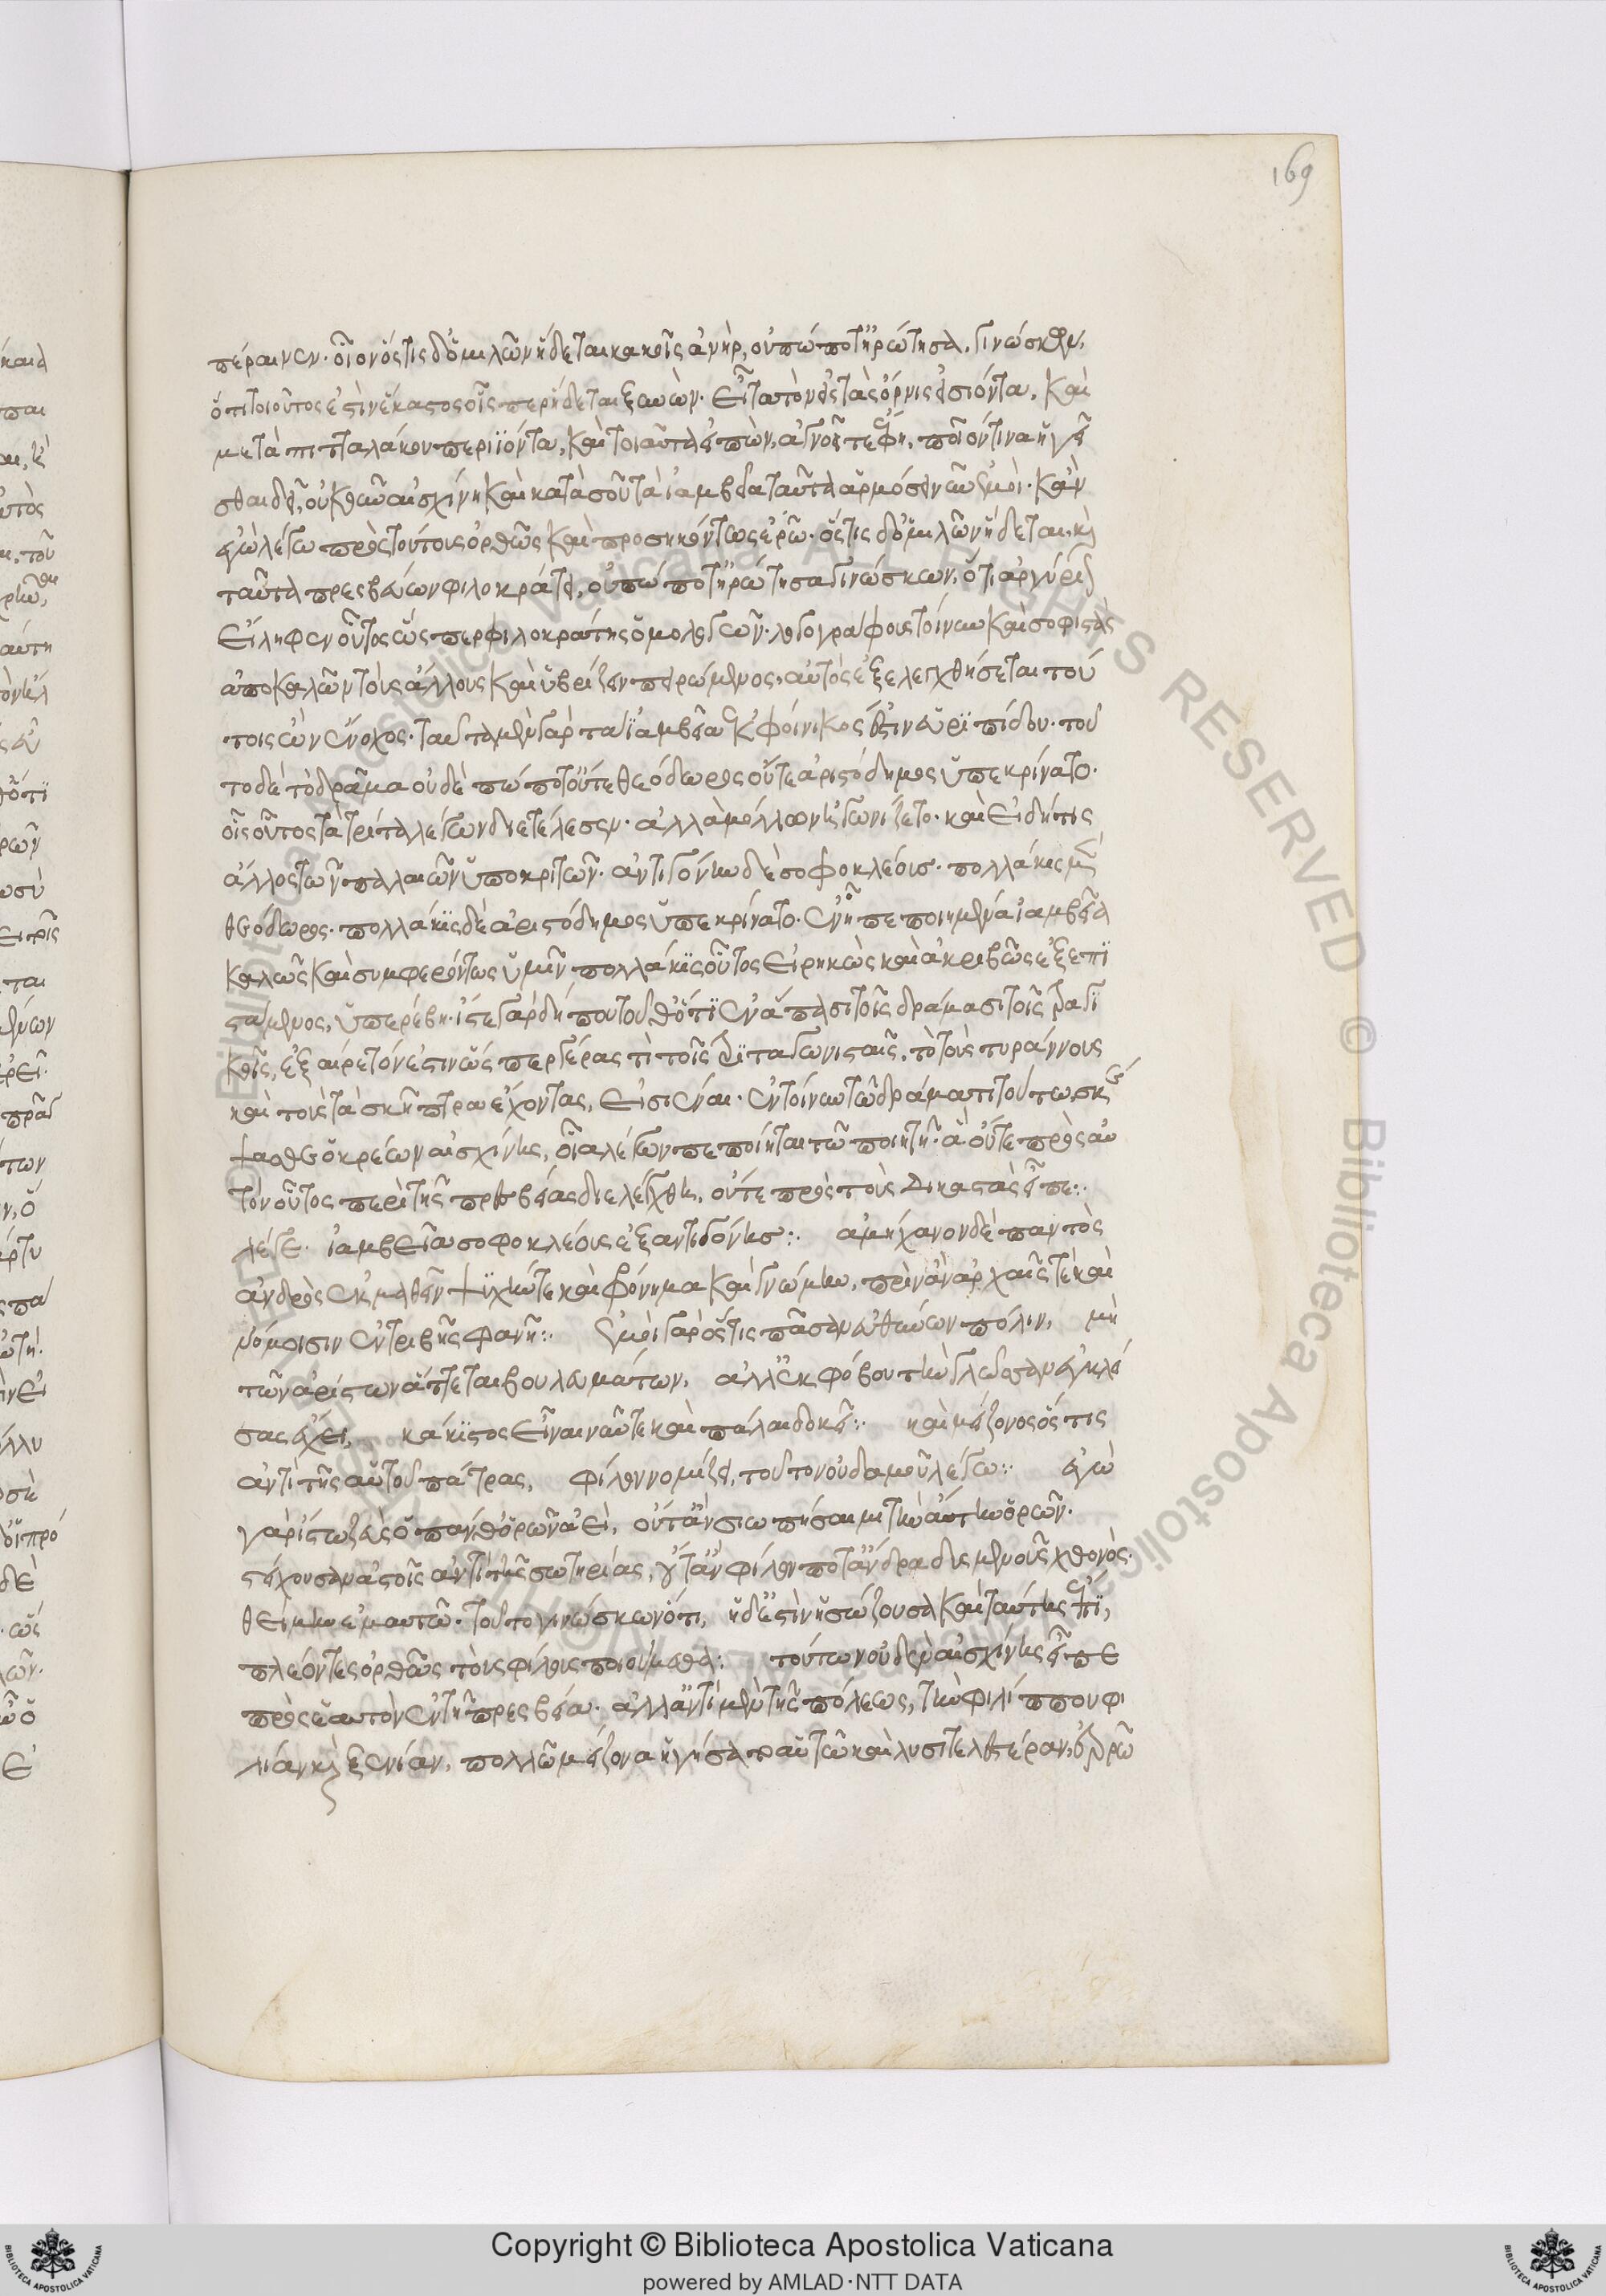 169
πέραινεν. οἷον ὅστις δ' ὁμιλῶν ἥδεται κακοῖς ἀνήρ, οὐ πώποτ' ἠρώτησα, γινώσκων,
ὅτι τοιοῦτος ἐστὶν ἕκαστος οἷς περ ἥδεται ξυνών. εἶτα τὸν εἰς τὰς ὄρνις εἰσιόντα, καὶ
μετὰ πιτταλάκου περιϊόντα, καὶ τοιαῦτα εἰπὼν, ἀγνοεῖτ' ἔφη, ποῖόν τινα ἡγεῖ
σθαι δεῖ, οὐκοῦν αἰσχίνη καὶ κατὰ σοῦ τὰ ἰαμβεῖα ταῦτα ἁρμόσει νῦν ἐμοί. κἂν
ἐγὼ λέγω πρὸς τούτους ὀρθῶς καὶ προσηκόντως ἐρῶ. ὅστις δ' ὁμιλῶν ἥδεται, καὶ
ταῦτα πρεσβεύων φιλοκράτει, οὐ πώποτ' ἠρώτησα γινώσκων, ὅτι ἀργύριον
εἴληφεν οὗτος ὥσπερ φιλοκράτης ὁ μολογῶν. λογογράφους τοίνυν καὶ σοφιστὰς
ἀποκαλῶν τοὺς ἄλλους καὶ ὑβρίζειν πειρώμενος, αὐτὸς ἐξελεγχθήσεται τού
τοις ὢν ἔνοχος. ταῦτα μὲν γὰρ τὰ ἰαμβεῖα ἐκ φοίνικός ἐστιν εὐριπίδου. τοῦ
το δὲ τὸ δρᾶμα οὐδὲ πώποτ' οὔτε θεόδωρος οὔτε ἀριστόδημος ὑπεκρίνατο.
οἷς οὗτος τὰ τρίτα λέγων διετέλεσεν. ἀλλὰ μόλλων ἠγωνίζετο. καὶ εἰ δή τις
ἄλλος τῶν παλαιῶν ὑποκριτῶν. ἀντιγόνην δὲ σοφοκλέους. πολλάκις μὲν
θεόδωρος. πολλάκις δὲ ἀριστόδημος ὑπεκρίνατο. ἐν ᾗ πεποιημένα ἰαμβεῖα
καλῶς καὶ συμφερόντως ὑμῖν πολλάκις οὗτος εἰρηκὼς καὶ ἀκριβῶς ἐξεπι
στάμενος, ὑπερέβη. ἴστε γὰρ δή που τοῦθ' ὅτι ἐν ἅπασι τοῖς δράμασι τοῖς τραγι
κοῖς, ἐξαίρετόν ἐστιν ὥσπερ γέρας τι τοῖς τριταγωνισταῖς, τὸ τοὺς τυράννους
καὶ τοὺς τὰ σκῆπτρα ἔχοντας, εἰσιέναι. ἐν τοίνυν τῷ δράματι τούτῳ σκέ
ψασθ' ὁ κρέων αἰσχίνης, οἷα λέγων πεποίηται τῷ ποιητῇ. ἃ οὔτε πρὸς αὑ
τὸν οὗτος περὶ τῆς πρεσβείας διελέχθη, οὔτε πρὸς τοὺς δικαστὰς εἶπε:.
λέγε. ἰαμβεῖα σοφοκλέους ἐξ ἀντιγόνης:. ἀμήχανον δὲ παντὸς
ἀνδρὸς ἐκμαθεῖν ψυχήν τε καὶ φρόνημα καὶ γνώμην, πρὶν ἂν ἀρχαῖς τε καὶ
νόμοισιν ἐντριβὴς φανῇ:. ἐμοὶ γὰρ ὅστις πᾶσαν εὐθύνων πόλιν, μὴ
τῶν ἀρίστων ἅπτεται βουλευμάτων, ἀλλ' ἐκ φόβου του γλῶσσαν ἐγκλεί
σας ἔχει, κάκιστος εἶναι νῦν τε καὶ πάλαι δοκεῖ:. καὶ μείζον' ὅστις
ἀντὶ τῆς αὑτοῦ πάτρας, φίλον νομίζει, τοῦτον οὐδαμοῦ λέγω:. ἐγὼ
γὰρ ἴστω ζεὺς ὁ πάνθ' ὁρῶν ἀεί, οὔτ' ἂν σιωπήσαιμι τὴν ἄτην ὁρῶν.
στείχουσαν ἀστοῖς ἀντὶ τῆς σωτηρίας, οὔτ' ἂν φίλον ποτ' ἄνδρα δυσμενοῦς χθονὸς.
θείμην ἐμαυτῷ. τοῦτο γινώσκων ὅτι, ἥδ' ἐστὶν ἡ σώζουσα καὶ ταύτης ἔπι,
πλέοντες ὀρθῶς τοὺς φίλους ποιούμεθα: τούτων οὐδὲν αἰσχίνης εἶπε
πρὸς ἑαυτὸν ἐν τῇ πρεσβείᾳ. ἀλλ' ἀντὶ μὲν τῆς πόλεως, τὴν φιλίππου φι
λίαν καὶ ξενίαν, πολλῷ μείζονα ἡγήσαθ' αὑτῷ καὶ λυσιτελεστέραν, ἐρρῶ